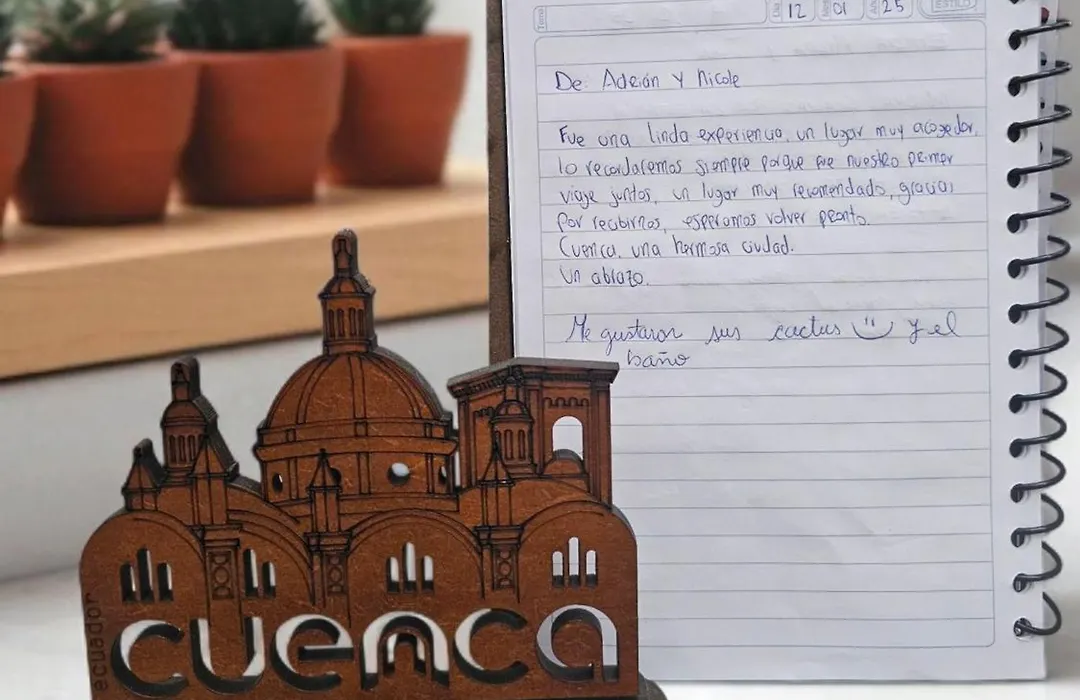 12 01 25
De: Adrián y Nicole
Fue una linda experiencia, un lugar muy acogedor,
lo recordaremos siempre porque fue nuestro primer
viaje juntos, un lugar muy recomendado, gracias
por recibirnos, esperamos volver pronto.
Cuenca, una hermosa ciudad.
Un abrazo.
Me gustaron sus cactus y el
baño
ecuador
cuenca